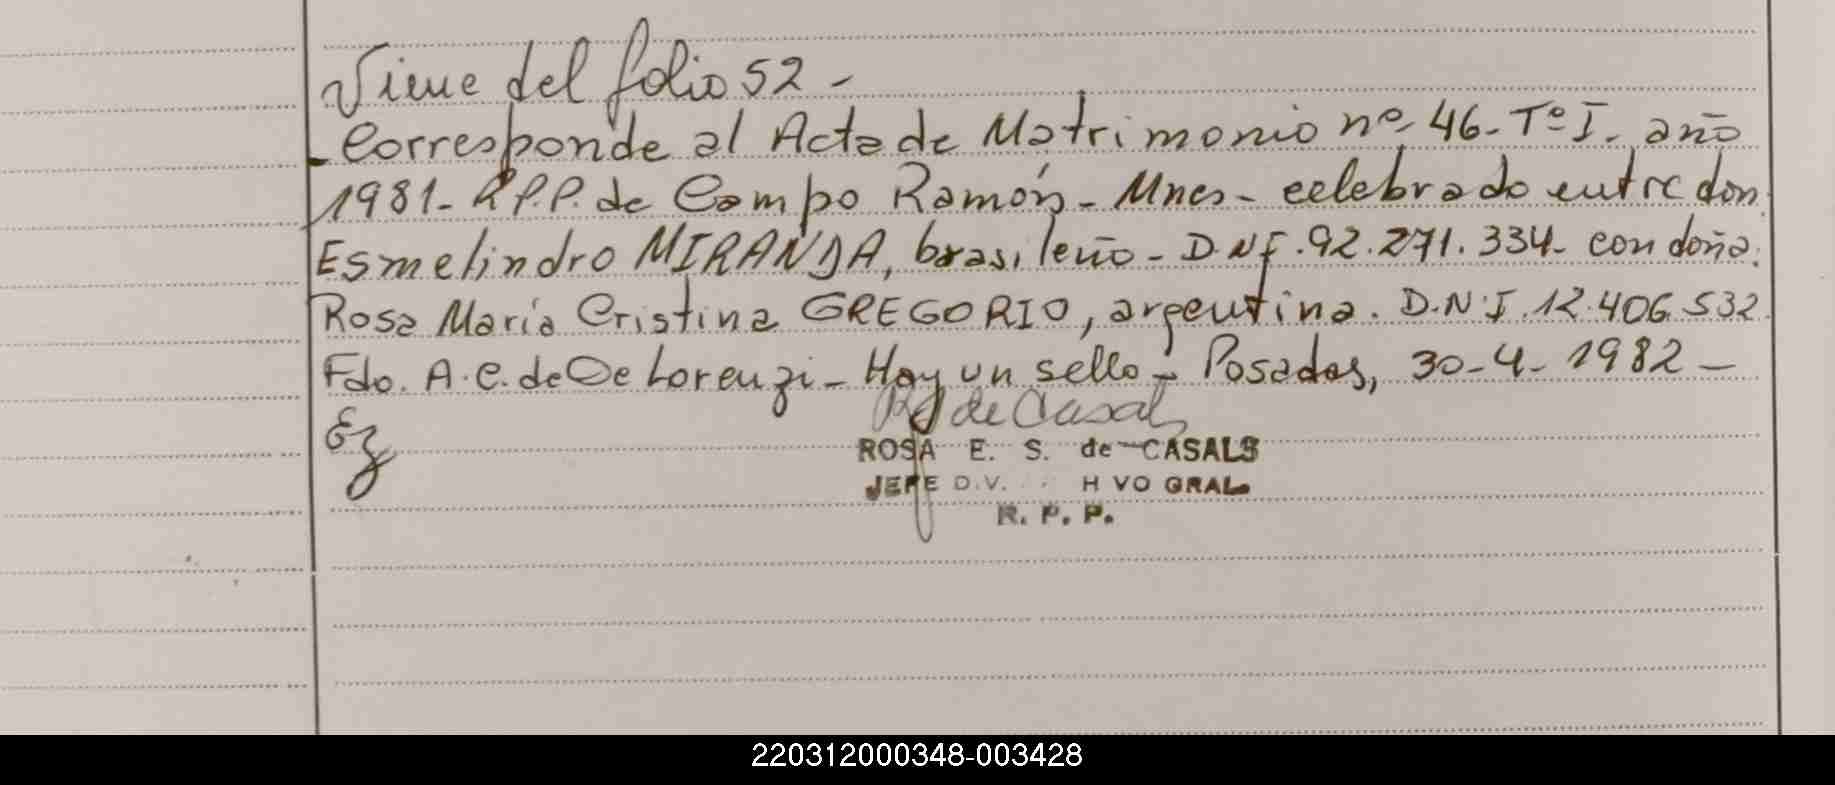 Viene del folio 52 -
- Corresponde al Acta de Matrimonio nº 46 - Tº I - año
1981 - R.P.P. de Campo Ramón - Mnes - celebrado entre don
Esmelindro MIRANDA, brasileño - D.N.I. 92.271.334 - con doña
Rosa María Cristina GREGORIO, argentina. D.N.I. 12.406.532
Fdo. A.C. de De Lorenzi - Hay un sello - Posadas, 30-4-1982 -
de Casals
ROSA E. S. de CASALS
JEFE D.V. H VO GRAL.
R. P. P.
220312000348-003428